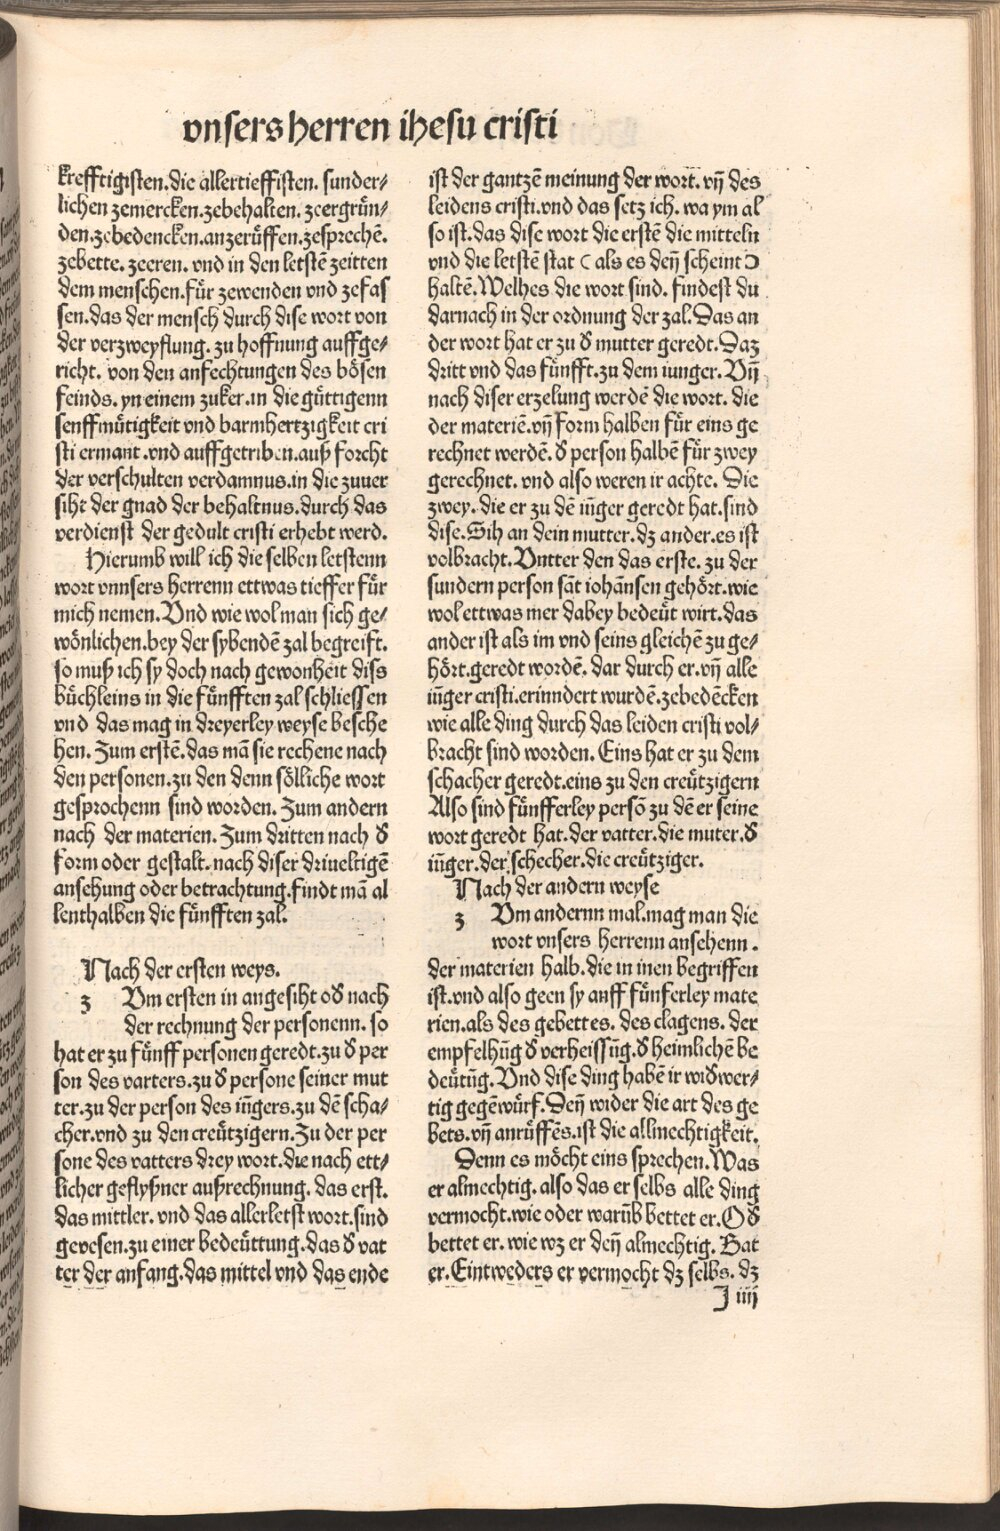 vnsers herren ihesu cristi
krefftigisten.die allertieffisten. sunder⸗
lichen zemercken.zebehalten. zeergrün⸗
den.zebedencken.anzerüffen.zesprechē.
zebette. zeeren. vnd in den letstē zeitten
dem menschen.für zewenden vnd zefas
sen.das der mensch durch dise wort von
der verzweyflung. zu hoffnung auffge⸗
richt. von den anfechtungen des bösen
feinds. yn einem zuker.in die güttigenn
senffmütigkeit vnd barmhertzigkeit cri
sti ermant.vnd auffgetriben.auß forcht
der verschulten verdamnus.in die zuuer
siht der gnad der behaltnus.durch das
verdienst der gedult cristi erhebt werd.
Hierumb will ich die selben letstenn
wort vnnsers herrenn ettwas tieffer für
mich nemen.Vnd wie wol man sich ge⸗
wönlichen.bey der sybendē zal begreift.
so muß ich sy doch nach gewonheit diss
büchleins in die fünfften zal schliessen
vnd das mag in dreyerley weyse besche
hen. Zum erstē.das mā sie rechene nach
den personen.zu den denn sölliche wort
gesprochenn sind worden. Zum andern
nach der materien. Zum dritten nach δ
form oder gestalt.nach diser driueltigē
ansehung oder betrachtung.findt mā al
lenthalben die fünfften zal.
Nach der ersten weys.
z Vm ersten in angesiht oδ nach
der rechnung der personenn. so
hat er zu fünff personen geredt.zu δ per
son des vatters.zu δ persone seiner mut
ter.zu der person des iūgers.zu dē scha⸗
cher.vnd zu den creützigern.Zu der per
sone des vatters drey wort.die nach ett⸗
licher geflyßner außrechnung. das erst.
das mittler. vnd das allerletst wort.sind
gewesen.zu einer bedeüttung.das δ vat
ter der anfang.das mittel vnd das ende
ist der gantzē meinung der wort. vn̄ des
leidens cristi.vnd das setz ich. wa ym al
so ist.das dise wort die erstē die mitteln
vnd die letstē stat ( als es den̄ scheint )
haltē.Welhes die wort sind. findest du
darnach in der ordnung der zal.Das an
der wort hat er zu δ mutter geredt.Daz
dritt vnd das fünfft.zu dem iunger.Vn̄
nach diser erzelung werdē die wort. die
der materiē.vn̄ form halben für eins ge
rechnet werdē. δ person halbē für zwey
gerechnet. vnd also weren ir achte. Die
zwey.die er zu dē iūger geredt hat.sind
dise.Sih an dein mutter.dz ander.es ist
volbracht.Vntter den das erste. zu der
sundern person sāt iohānsen gehört.wie
wol ettwas mer dabey bedeüt wirt.das
ander ist als im vnd seins gleichē zu ge⸗
hört.geredt wordē. dar durch er.vn̄ alle
iūger cristi.erinndert wurdē.zebedēcken
wie alle ding durch das leiden cristi vol⸗
bracht sind worden. Eins hat er zu dem
schacher geredt.eins zu den creützigern
Also sind fünfferley persō zu dē er seine
wort geredt hat.der vatter.die muter.δ
iūger.der schecher.die creütziger.
Nach der andern weyse
z Vm andernn mal.mag man die
wort vnsers herrenn ansehenn.
der materien halb.die in inen begriffen
ist.vnd also geen sy auff fünferley mate
rien.als des gebettes. des clagens. der
empfelhūg δ verheissūg.δ heimlichē be
deütūg.Vnd dise ding habē ir wiδwer⸗
tig gegēwürf.Den̄ wider die art des ge
bets.vn̄ anrüffēs.ist die allmechtigkeit.
Denn es möcht eins sprechen.Was
er almechtig. also das er selbs alle ding
vermocht.wie oder warūb bettet er.Oδ
bettet er. wie wz er den̄ almechtig. Bat
er.Eintweders er vermocht dz selbs. dz
J iiij